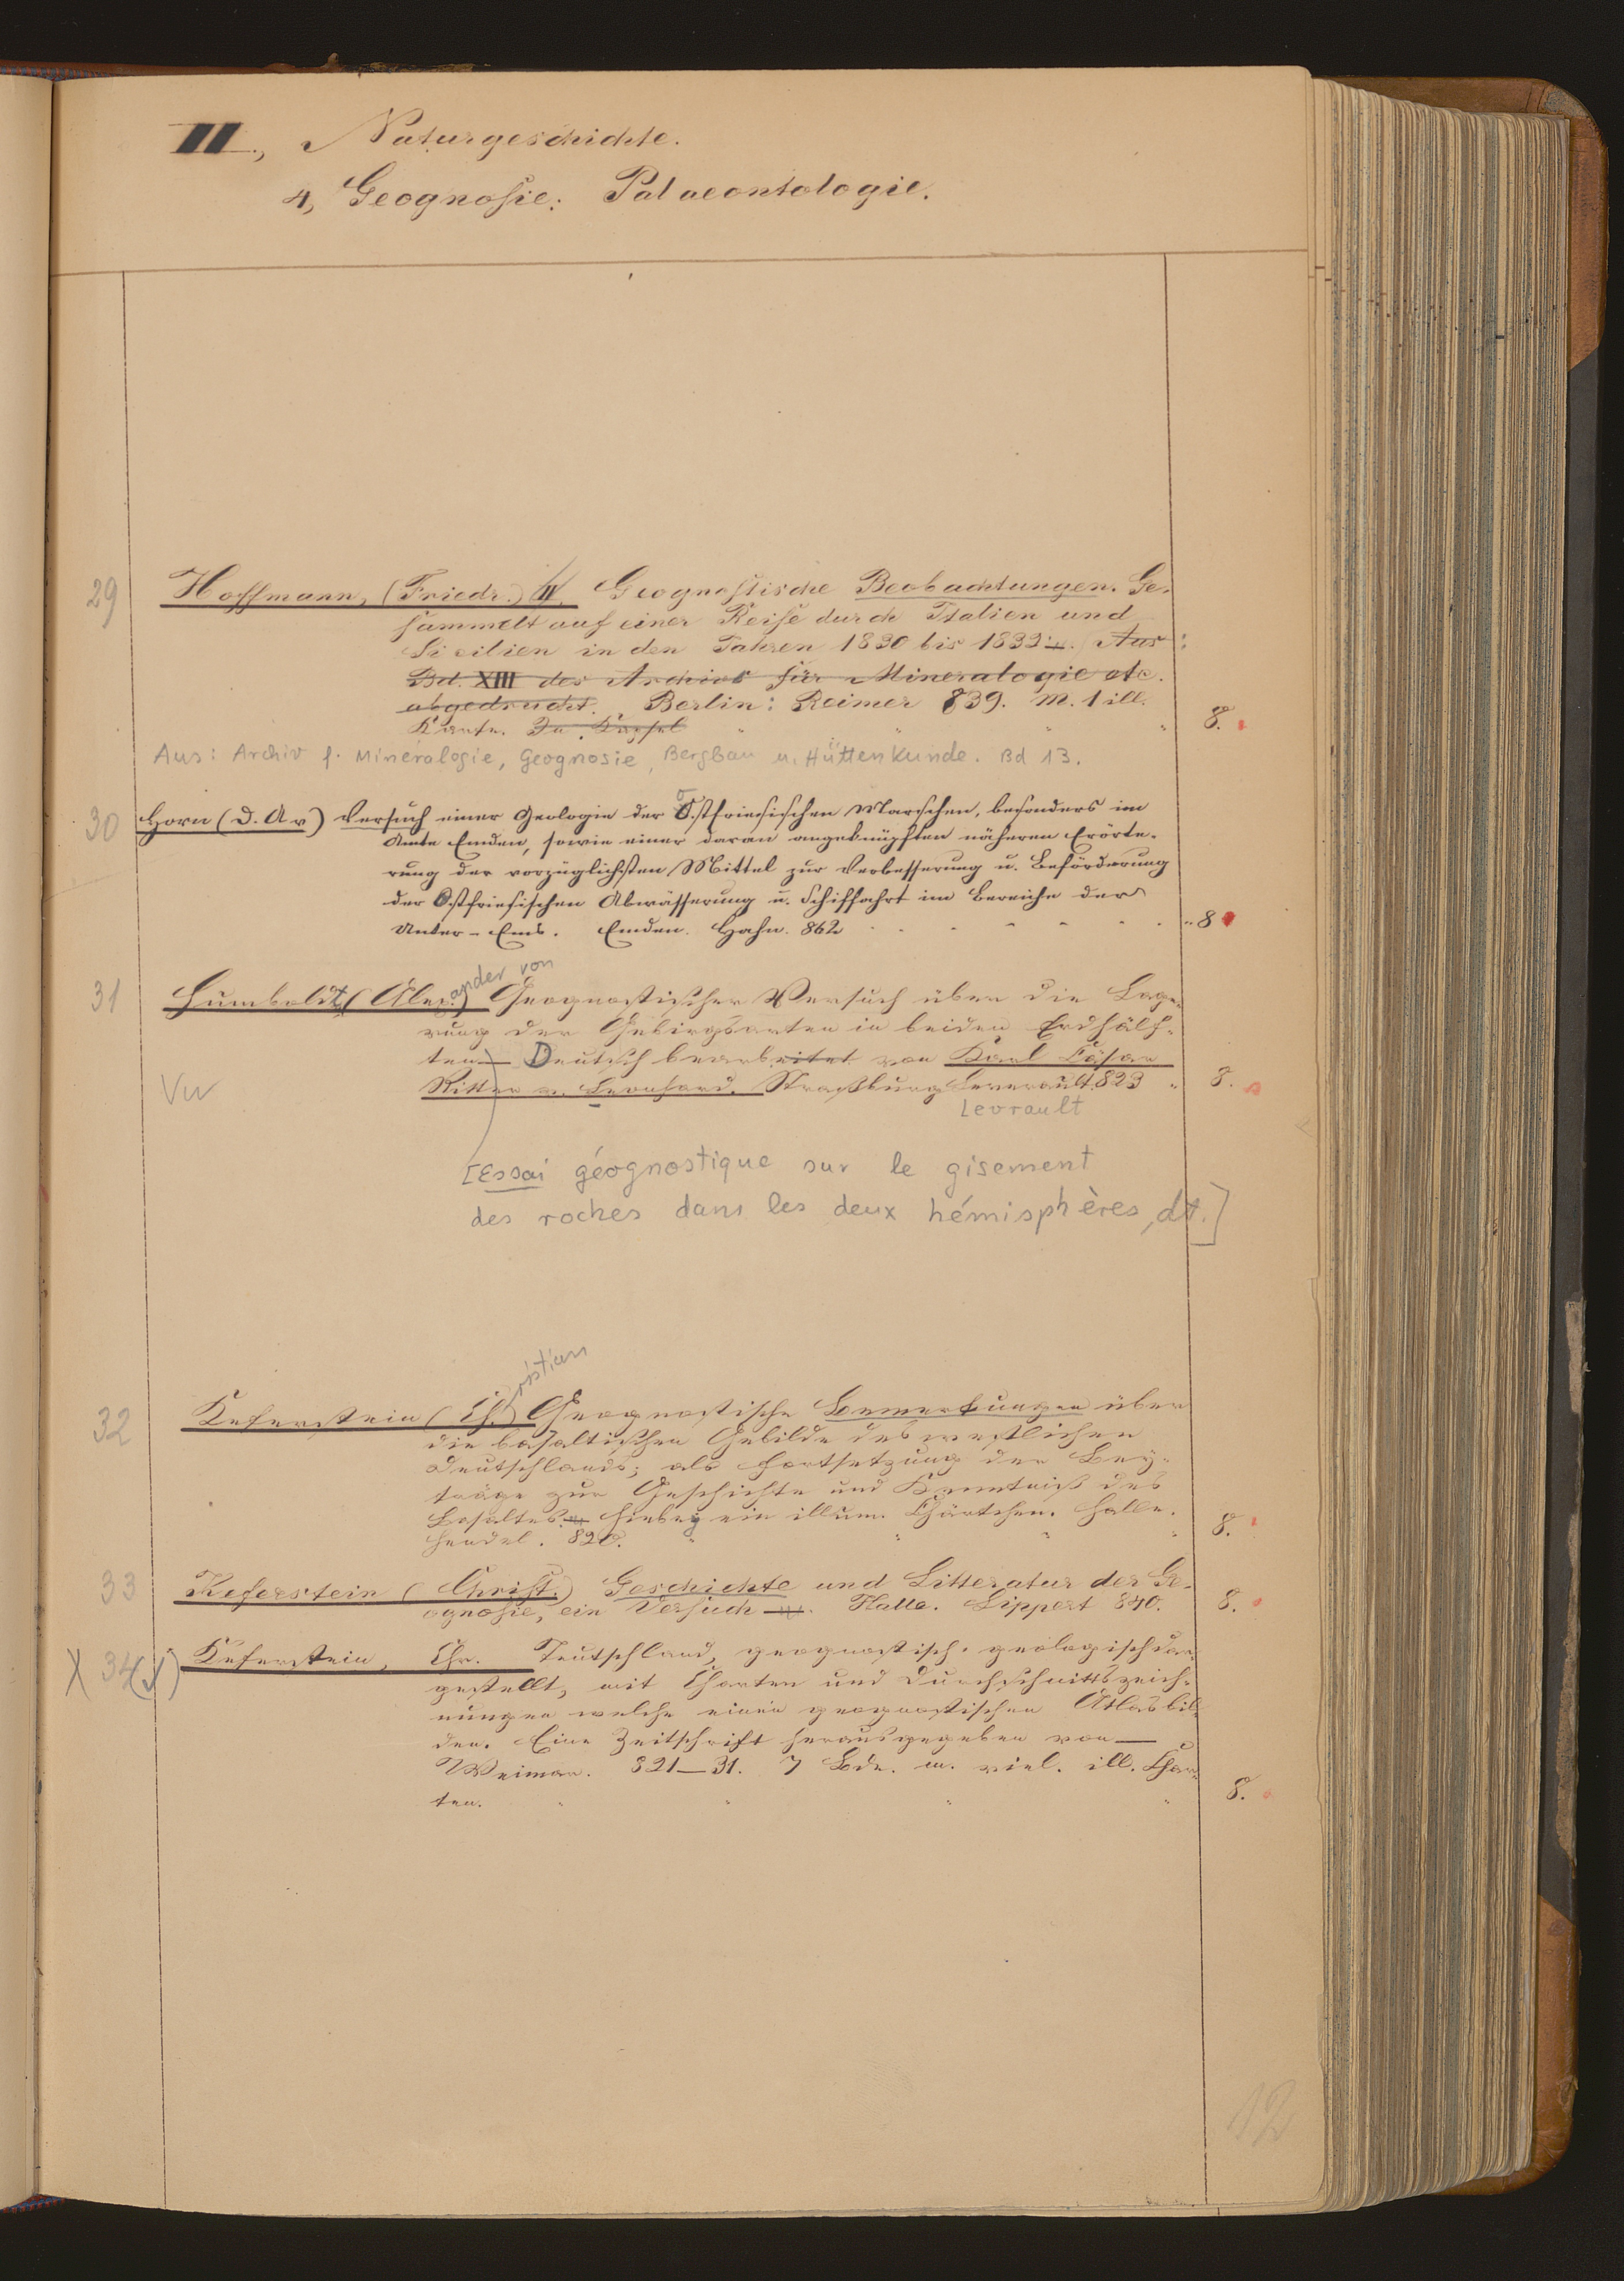 II., Naturgeschichte.
4, Geognosie: Palaeontologie.
29 Hoffmann, (Friedr.) Geognostische Beobachtungen. Ge-
sammelt auf einer Reise durch Italien und
Sicilien in den Jahren 1830 bis 1832. Aus:
Bd. XIII des Archivs für Mineralogie etc.
abgedruckt. Berlin: Reimer 839. m. 1 ill.
Karte. 8.
Aus: Archiv f. Mineralogie, Geognosie, Bergbau u. Hüttenkunde. Bd 13.
30 Horn (D. A v) Versuch einer Geologie der Ostfriesischen Marschen, besonders im
Amte Emden, sowie einer daran angeknüpften näheren Erörte-
rung der vorzüglichsten Mittel zur Verbesserung u. Beförderung
der Ostfriesischen Abwässerung u. Schiffahrt im Bereiche der
Unter-Ems. Emden. Hahn. 862 8
ander von
31 Humboldt, (Alex.) Geognostischer Versuch über die Lage-
rung der Gebirgsarten in beiden Erdhälf-
ten. Deutsch bearbeitet von Karl Cäsar
Ritter v. Leonhard. Straßburg Leverault 823 8.
Levrault
[Essai géognostique sur le gisement
des roches dans les deux hémisphères, dt.]
ristian
32 Keferstein (Ch.) Geognostische Bemerkungen über
die basaltischen Gebilde des westlichen
Deutschlands; als Fortsetzung der Bey-
träge zur Geschichte und Kenntniß des
Basaltes. Hiebey ein illum. Chärtchen. Halle.
Hendel. 820. 8.
33 Keferstein (Christ.) Geschichte und Litteratur der Ge-
ognosie, ein Versuch. Halle. Lippert 840. 8.
X 34 Keferstein, Chr. Teutschland, geognostisch-geologisch dar-
gestellt, mit Charten und Durchschnittszeich-
nungen welche einen geognostischen Atlas bil-
den. Eine Zeitschrift herausgegeben von—
Weimar. 821—31. 7 Bde. m. viel. ill. Char-
ten. 8.
12